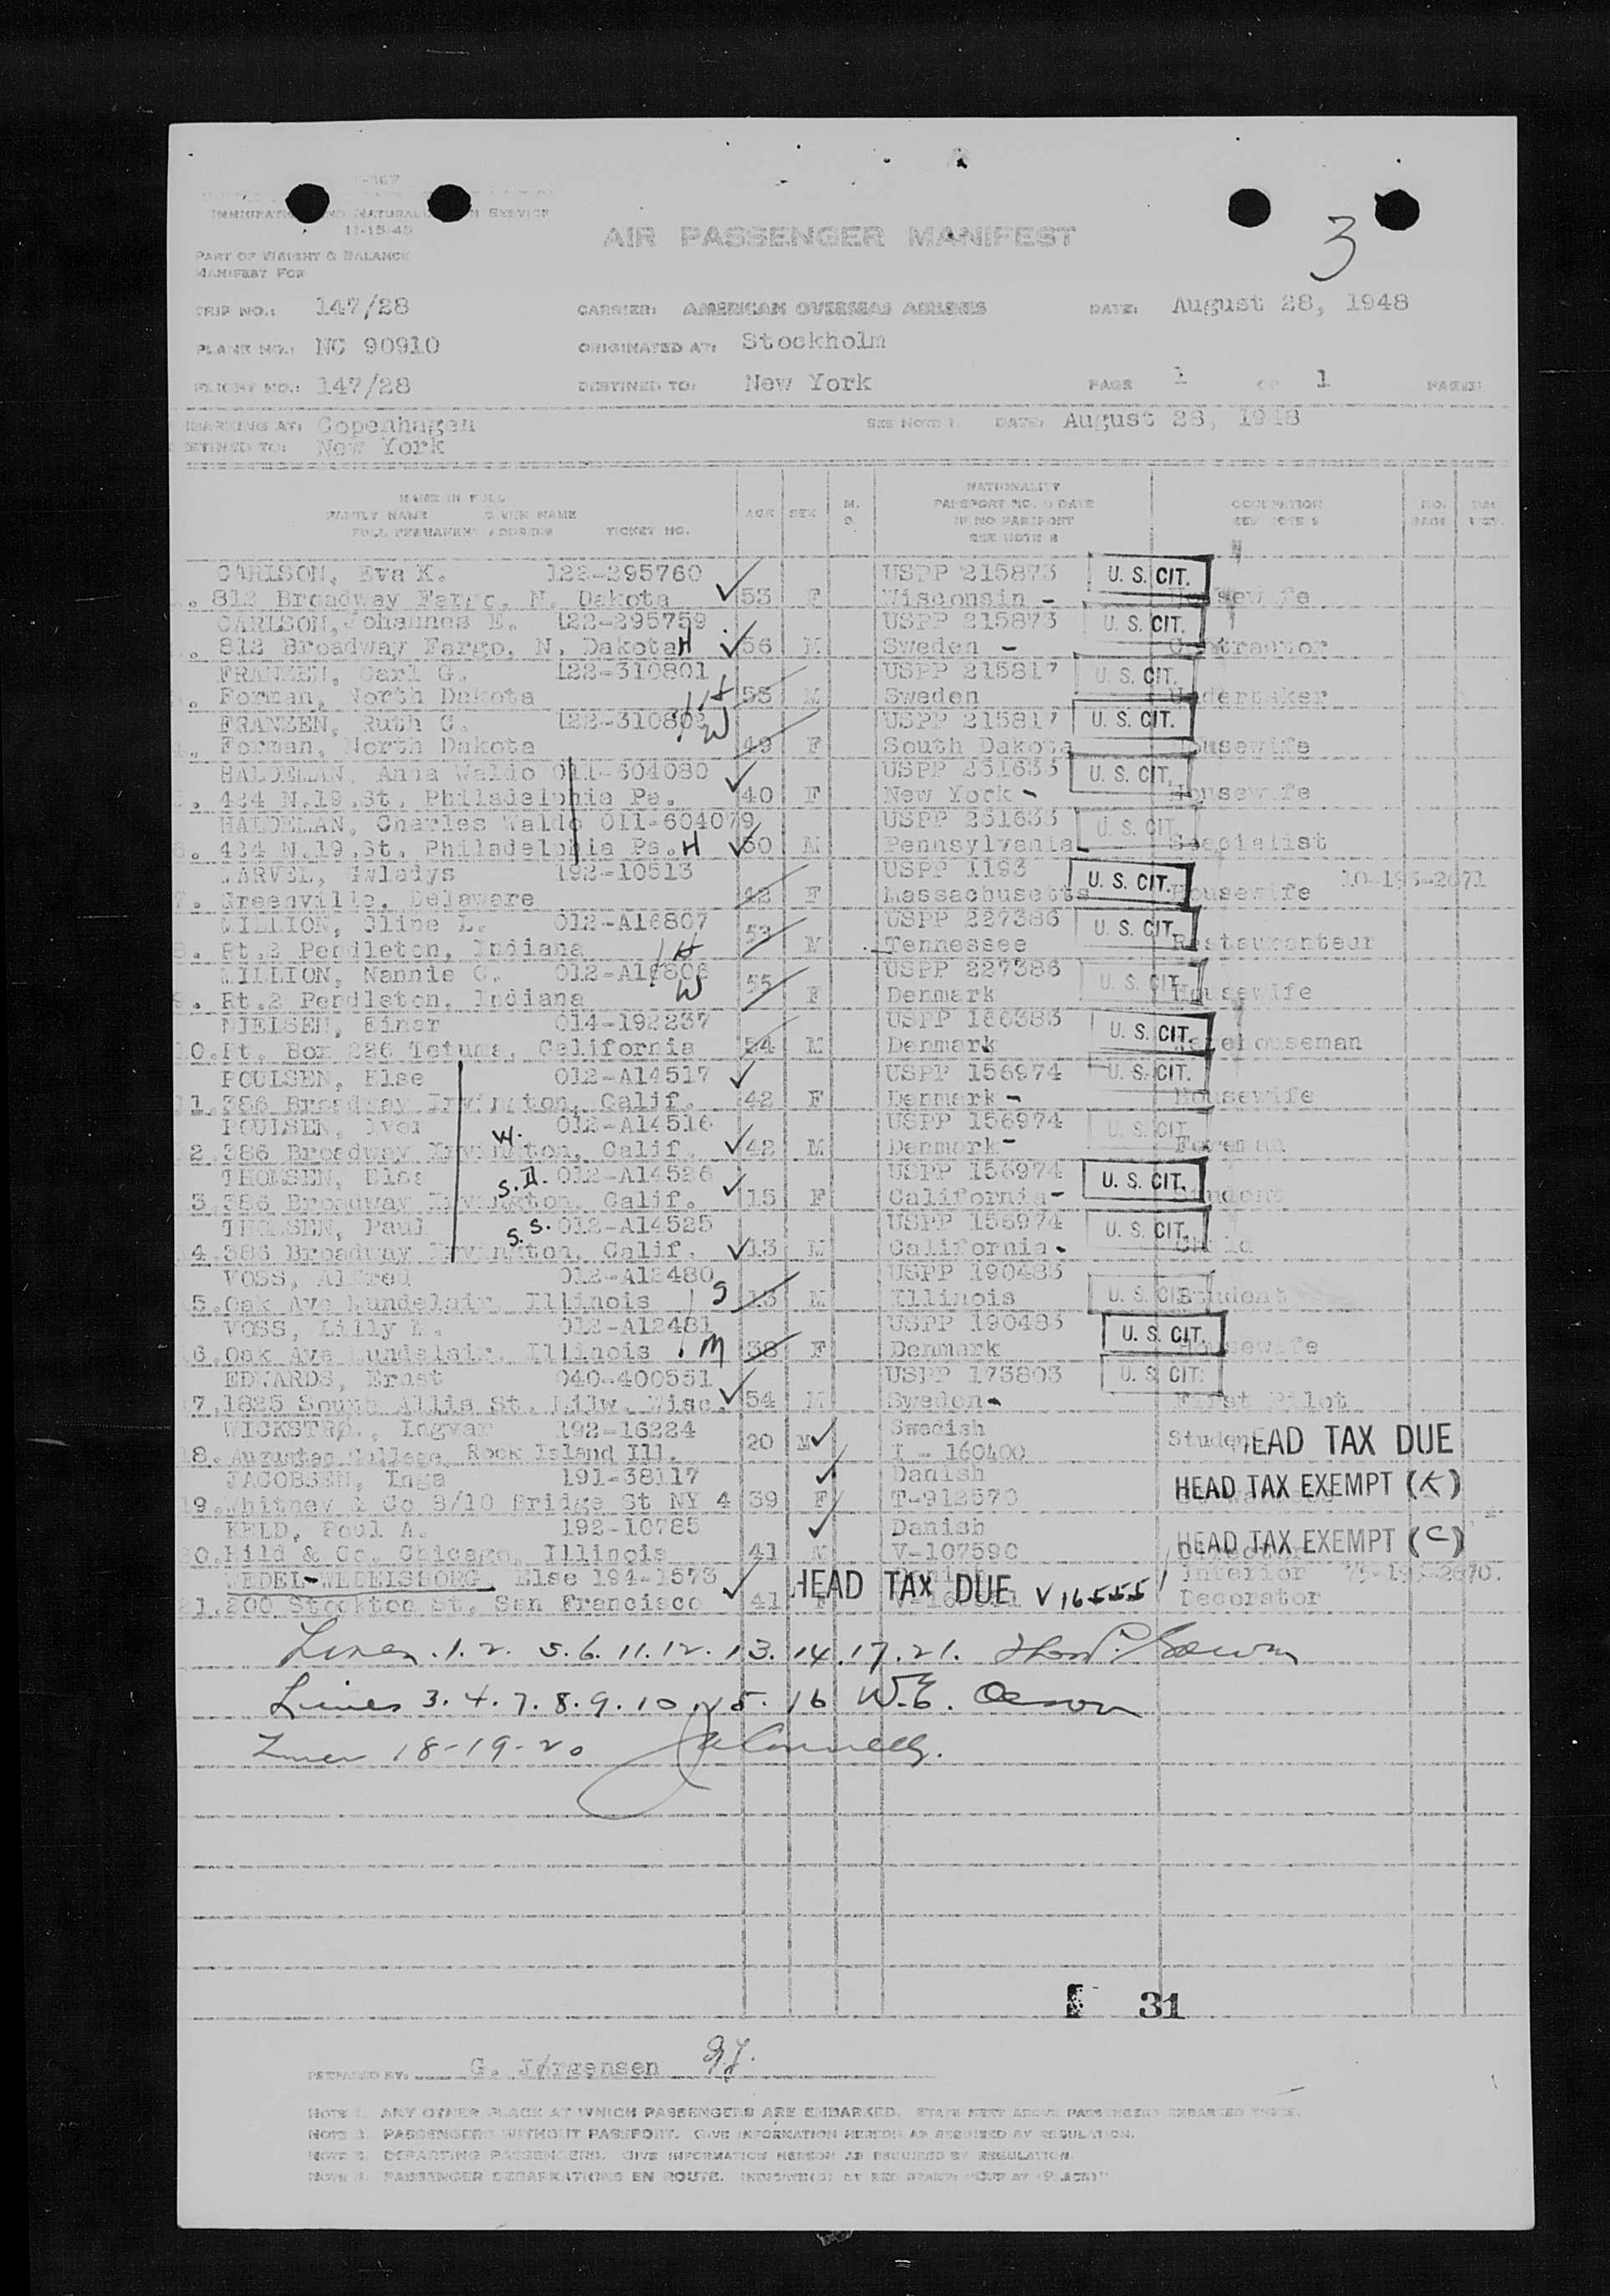 3
IMMIGRATION AND NATURALIZATION SERVICE
11-15-45
AIR PASSENGER MANIFEST
PART OF WEIGHT & BALANCE
MANIFEST FOR
TRIP NO.: 147/28 CARRIER: AMERICAN OVERSEAS AIRLINES DATE: August 28, 1948
PLANE NO.: NC 90910 ORIGINATED AT: Stockholm
FLIGHT NO.: 147/28 DESTINED TO: New York PAGE 1 OF 1 PAGES
EMBARKING AT: Copenhagen SEE NOTE 1 DATE: August 28, 1948
DESTINED TO: New York
NAME IN FULL
FAMILY NAME GIVEN NAME
FULL PERMANENT ADDRESS TICKET NO.
AGE SEX
NATIONALITY
PASSPORT NO. & DATE
IF NO PASSPORT
SEE NOTE 2
OCCUPATION
SEE NOTE 3
CARLSON, Eva K. 122-295760 USPP 215873 U. S. CIT.
812 Broadway Fargo, N. Dakota 53 F Wisconsin - Housewife
CARLSON, Johannes E. 122-295759 USPP 215873 U. S. CIT.
812 Broadway Fargo, N. Dakota H 56 M Sweden - Contractor
FRANZEN, Carl G. 122-310801 USPP 215817 U. S. CIT.
Forman, North Dakota H 53 M Sweden Undertaker
FRANZEN, Ruth C. 122-310802 W USPP 215817 U. S. CIT.
Forman, North Dakota 49 F South Dakota Housewife
HALDEMAN, Anna Waldo 011-604080 USPP 251633 U. S. CIT.
424 N.19.St. Philadelphia Pa. 40 F New York - Housewife
HALDEMAN, Charles Waldo 011-604079 USPP 251633 U. S. CIT.
424 N.19.St. Philadelphia Pa. H 50 M Pennsylvania
MARVEL, Gwladys 192-10513 USPP 1193 U. S. CIT.
7. Greenville, Delaware 42 F Massachusetts Housewife
MILLION, Cline L. 012-A16807 USPP 227386 U. S. CIT.
8. Rt.2 Pendleton, Indiana H 53 M Tennessee Restauranteur
MILLION, Nannie C. 012-A16808 USPP 227386 U. S. CIT.
9. Rt.2 Pendleton, Indiana W 55 F Denmark Housewife
NIELSEN, Einar 014-192237 USPP 186383 U. S. CIT.
10. Rt. Box 226 California 54 M Denmark Warehouseman
POULSEN, Else 012-A14517 USPP 156974 U. S. CIT.
11. 386 Broadway Irvington, Calif. 42 F Denmark - Housewife
POULSEN, Iver 012-A14516 USPP 156974 U. S. CIT.
12. 386 Broadway Irvington, Calif. W. 42 M Denmark - Foreman
THOMSEN, Else 012-A14526 USPP 156974 U. S. CIT.
13. 386 Broadway Irvington, Calif. S.D. 15 F California - Student
THOMSEN, Paul S.S. 012-A14525 USPP 156974 U. S. CIT.
14. 386 Broadway Irvington, Calif. 13 M California - Child
VOSS, Alfred 012-A12480 USPP 190483
15. Oak Ave Mundelein, Illinois S 13 M Illinois U. S. CIT. Student
VOSS, Lilly 012-A12481 USPP 190483 U. S. CIT.
16. Oak Ave Mundelein, Illinois M 38 F Denmark Housewife
EDWARDS, Ernst 040-400551 USPP 173803 U. S. CIT.
17. 1825 South Allis St. Milw. Wisc. 54 M Sweden - First Pilot
WICKSTRØ., Ingvar 192-16224 Swedish
18. Augustan College, Rock Island Ill. 20 M I - 160400 Student HEAD TAX DUE
JACOBSEN, Inga 191-38117 Danish
19. Whitney & Co 8/10 Bridge St NY 4 39 F T-912570 HEAD TAX EXEMPT (K)
KELD, Poul A. 192-10785 Danish
20. Hild & Co. Chicago, Illinois 41 M V-107590 HEAD TAX EXEMPT (C)
WEDEL-WEDELSBORG, Else 194-1573 HEAD TAX DUE V 16555 Interior
21. 200 Stockton St, San Francisco 41 F Decorator
Lines 1. 2. 5. 6. 11. 12. 13. 14. 17. 21.
Lines 3. 4. 7. 8. 9. 10. 15. 16 W.E.
Lines 18-19-20
31
PREPARED BY: G. Jørgensen G.J.
NOTE 1. ANY OTHER PLACE AT WHICH PASSENGERS ARE EMBARKED. STATE NEXT ABOVE PASSENGERS EMBARKED THERE.
NOTE 2. PASSENGERS WITHOUT PASSPORT. GIVE INFORMATION HEREON AS REQUIRED BY REGULATION.
NOTE 3. DEPARTING PASSENGERS. GIVE INFORMATION HEREON AS REQUIRED BY REGULATION.
NOTE 4. PASSENGER DEBARKATIONS EN ROUTE. INDICATE BY RED STAMP "OFF AT (PLACE)"